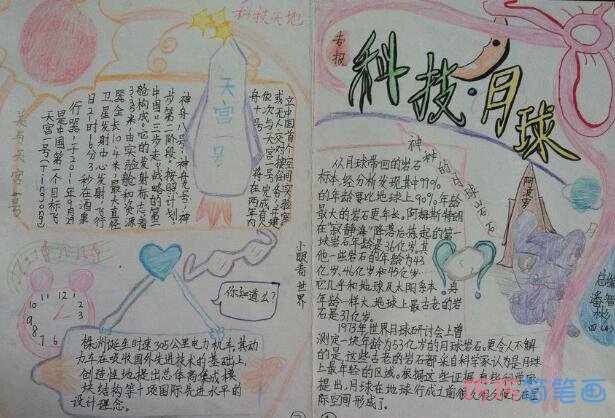 科技天地
天宫一号
关与天宫一号
天宫一号(TianGong1)
是中国第一个目标飞
行器,于2011年9月29
日21时16分3秒在酒泉
卫星发射中心发射,飞
器全长10.4米,最大直径
3.35米,由实验舱和资源
舱构成。它的发射标志着
中国"三步走"战略的第二
步第二阶段。按照计划,
神舟八号、神舟九号、神
舟十号将在两年内
依次与天宫一号完成有人
或无人交会对接任务,并建
立中国首个空间实验室
小眼看世界
你知道么?
株洲诞生时速305公里电力机车,其动
力车在吸收国外先进技术的基础上,
创造性地提出总体高集成模
块结构等十项国际先进水平的
设计理念。
专报
科技·月球
神秘的月球岩石
阿波罗
从月球带回的岩石
标本,经分析发现其中99%
的年龄要比地球上90%年龄
最大的岩石更年长。阿姆斯特朗
在"寂静海"降落后拣起的第一
块岩石年龄是36亿岁,其
他一些岩石的年龄为43
亿岁、46亿岁和45亿岁。
它几乎和地球及太阳系本身
年龄一样大,地球上最古老的岩
石是37亿岁。
1973年世界月球研讨会上曾
测定一块年龄为53亿岁的月球岩石。更令人不解
的是,这些古老的岩石都采自科学家认为是月球
上最年轻的区域。根据这些证据,有些科学家
提出,月球在地球行成之前很久很久便已在星
际空间形成了。